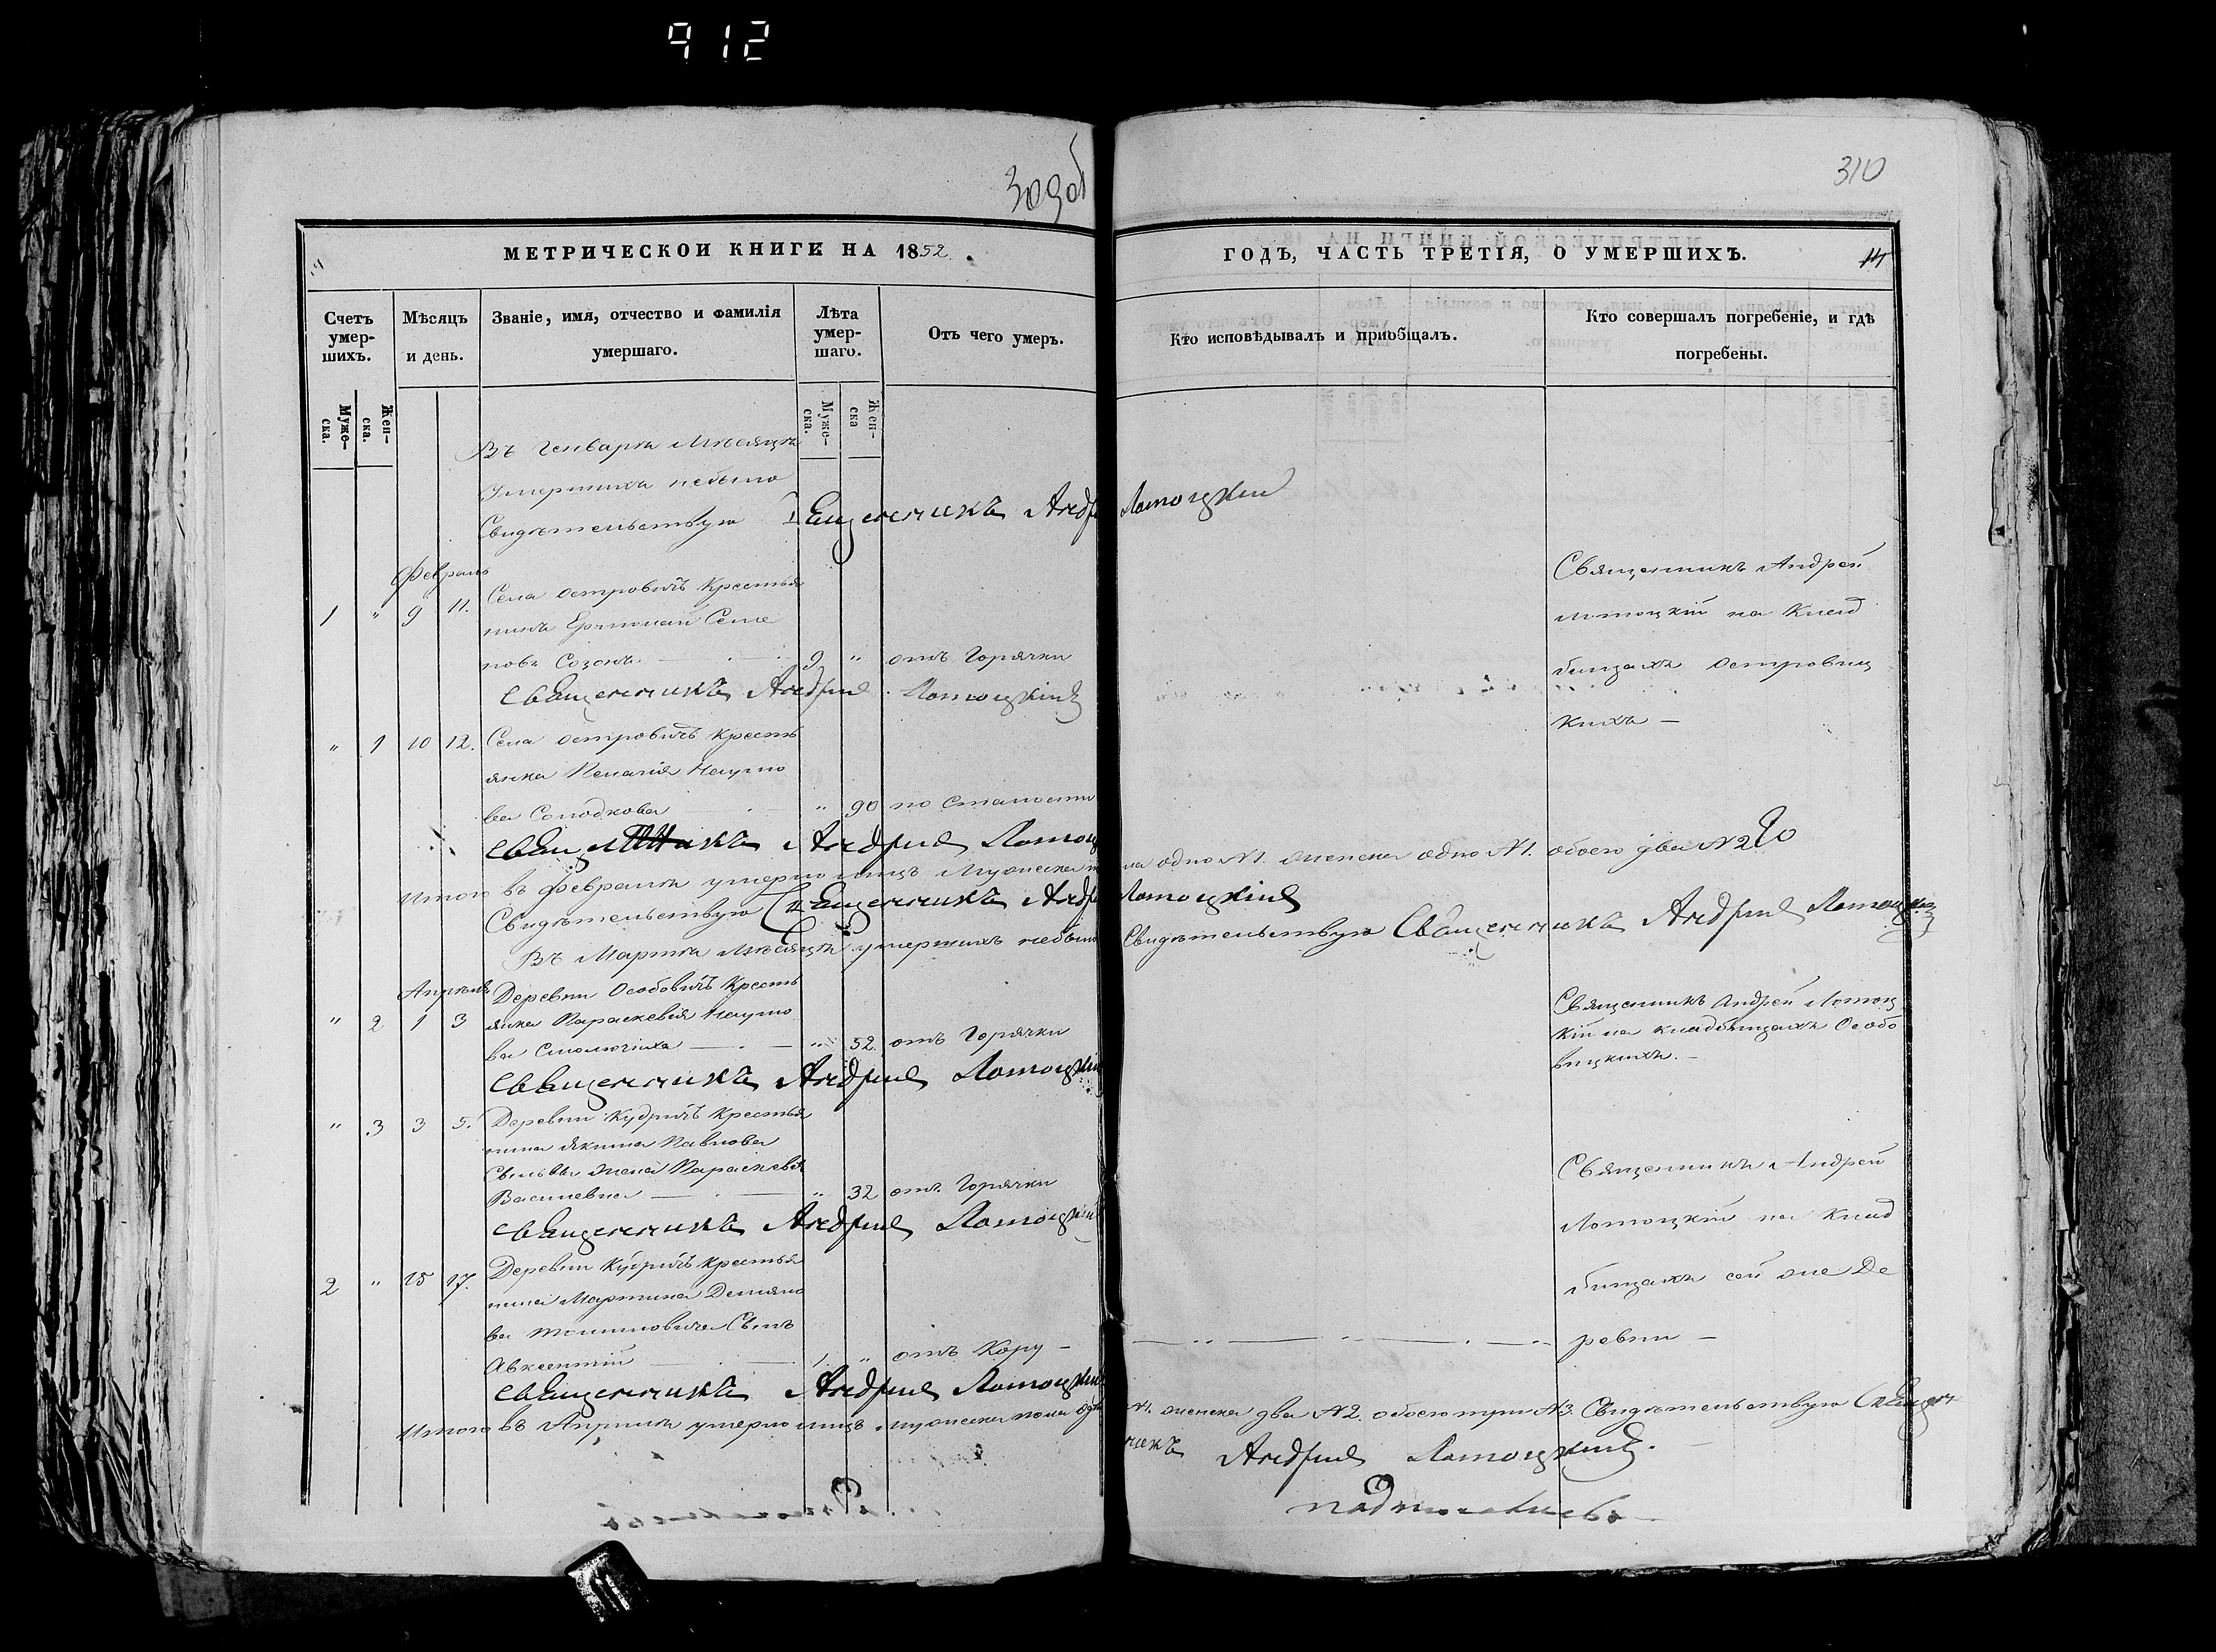 912
309об
310
МЕТРИЧЕСКОЙ КНИГИ НА 1852.
ГОДЪ, ЧАСТЬ ТРЕТІЯ, О УМЕРШИХЪ.
14
Счетъ умер-шихъ.
Мѣсяцъ и день.
Званіе, имя, отчество и фамилія умершаго.
Лѣта умер-шаго.
Отъ чего умеръ.
Кто исповѣдывалъ и пріобщалъ.
Кто совершалъ погребеніе, и гдѣ погребены.
Муже-ска.
Жен-ска.
Муже-ска.
Жен-ска
Въ Генварѣ Мѣсяцѣ
Умершихъ небыло
Свидѣтельствую Священникъ Андрей Лотоцкий
Февраль
1 " 9 11. Села Островичъ Крестья
нинъ Семе
новъ Созонъ. 9 " отъ Горячки
Священникъ Андрей Лотоцкій
Священникъ Андрей
Лотоцкій на Клад
бищахъ Островиц
кихъ —
" 1 10 12. Села Островичъ Кресть
янка Пелагія Наумо
ва Солодкова " 90 по Старости
Священникъ Андрей Лотоц
Итого въ Февралѣ умерло лицъ Мужеска пола одно №1. женска одно №1. обоего два №2
Свидѣтельствую Священникъ Андрей Лотоцкій
Въ Мартѣ Мѣсяцѣ умершихъ небыло Свидѣтельствую Священникъ Андрей Лотоцкій
Апрѣль
" 2 1 3 Деревни Особовичъ Кресть
янка Параскевія Наумо
ва — " 52. отъ Горячки
Священникъ Андрей Лотоцкій
Священникъ Андрей Лотоц
кій на кладбищахъ Особо
вицкихъ. —
" 3 3 5. Деревни Кудричъ Крестья
нина Якима Павлова
жена Параскевія
Василевна — " 32 отъ Горячки
Священникъ Андрей Лотоцкій
Священникъ Андрей
Лотоцкій на Клад
бищахъ сей же Де
ревни —
2 " 15 17. Деревни Кудричъ Крестья
нина Мартина Демяно
ва Сынъ
Авксентій — 1 " отъ Кору —
Священникъ Андрей Лотоцкій
Итого въ Апрѣлѣ умерло лицъ мужеска пола одно №1. женска два №2. обоего три №3. Свидѣтельствую Священ
никъ Андрей Лотоцкій.